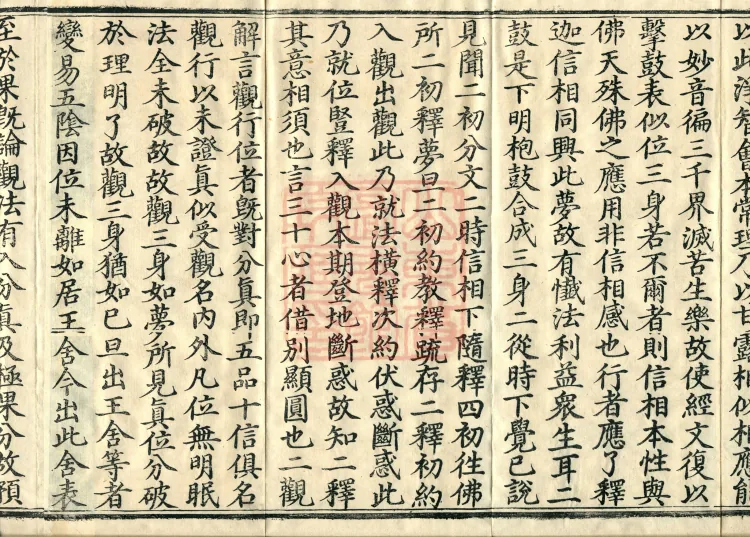 以此淨智會本常理以甘相似相應能
以妙音徧三千界滅苦生樂故使經文復以
擊鼓表似位三身若不爾者則信相本性與
佛天殊佛之應用非信相感也行者應了釋
迦信相同興此夢故有懺法利益衆生耳二
鼓是下明枹鼓合成三身二從時下覺已說
見聞二初分文二時信相下隨釋四初徃佛
所二初釋夢旦二初約教釋疏存二釋初約
入觀出觀此乃就法橫釋次約伏惑斷惑此
乃就位豎釋入觀本期登地斷惑故知二釋
其意相須也言三十心者借別顯圓也二觀
解言觀行位者旣對分眞即五品十信俱名
觀行以未證眞似受觀名內外凡位無明眠
法全未破故故觀三身如夢所見眞位分破
於理明了故觀三身猶如已旦出王舍等者
變易五陰因位未離如居王舍今出此舍表
至於果旣論觀法有入分眞及極果分故預